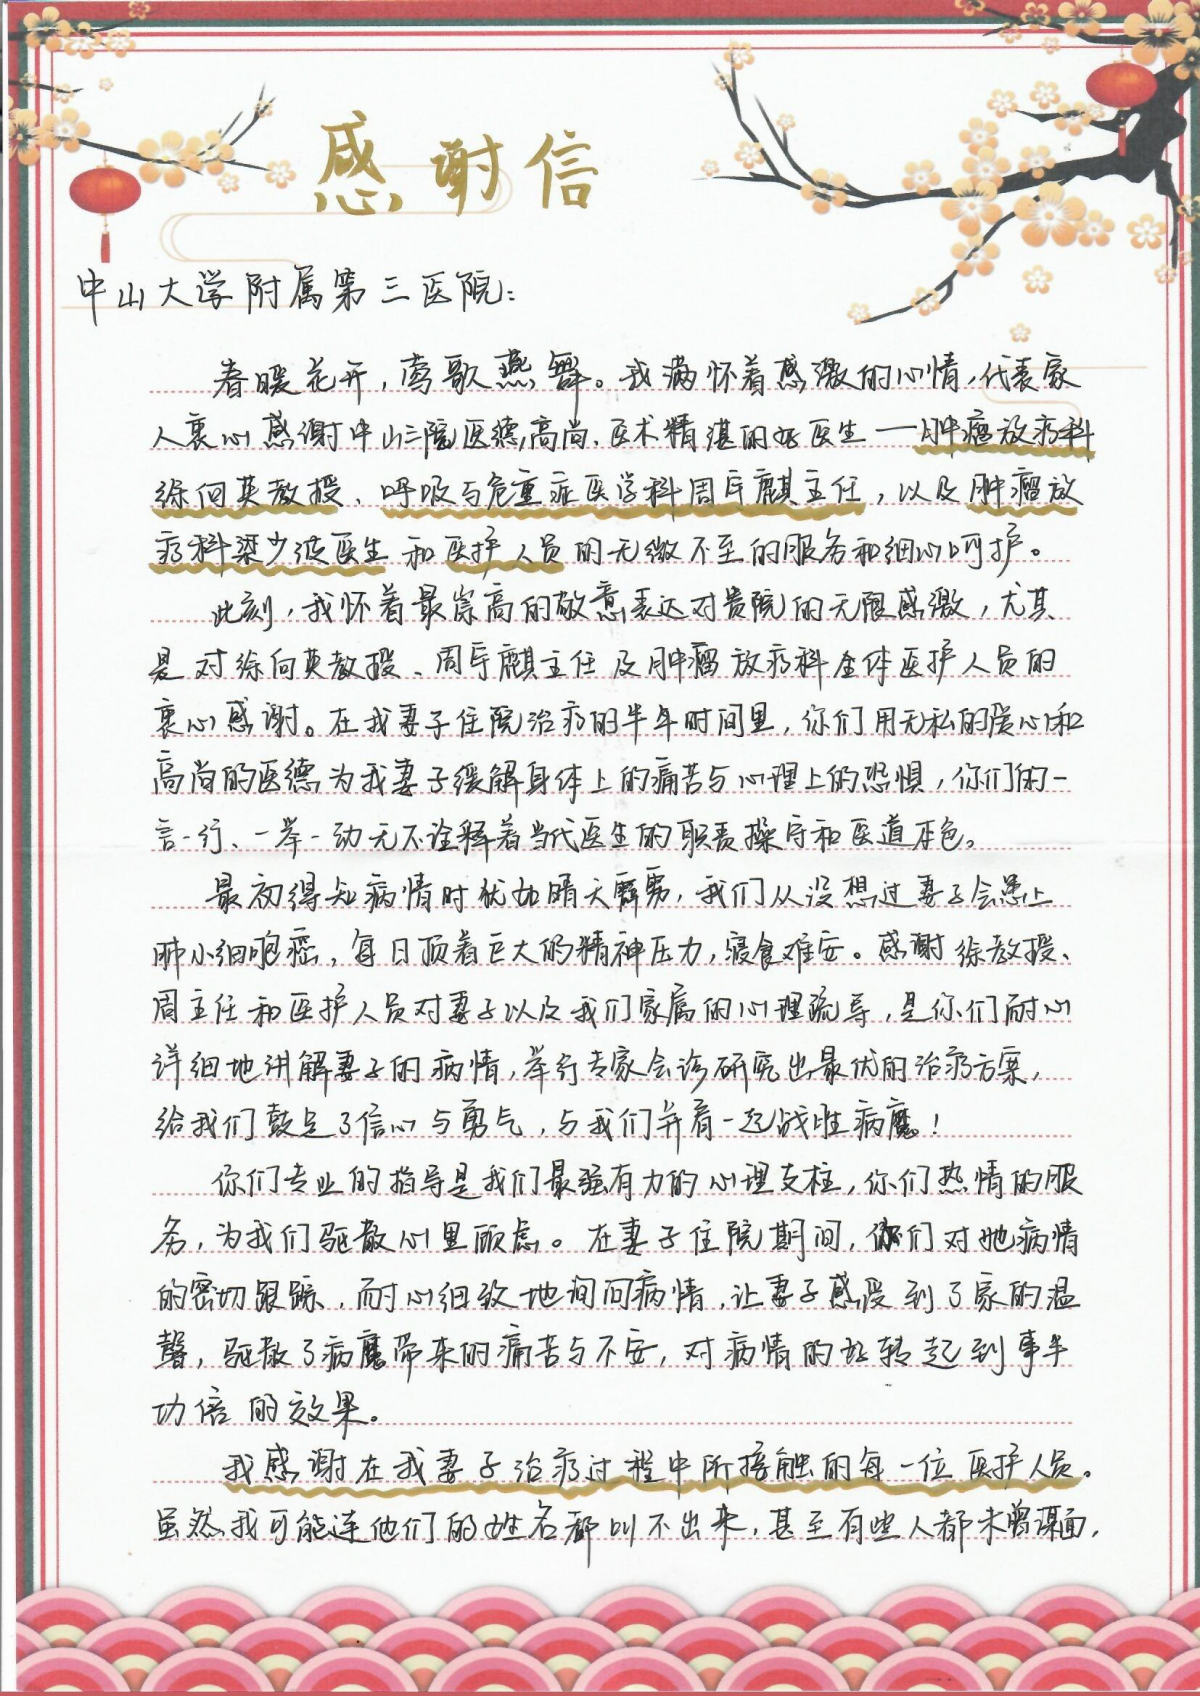 感谢信
中山大学附属第三医院:
春暖花开,莺歌燕舞。我满怀着感激的心情,代表家
人衷心感谢中山三院医德高尚、医术精湛的好医生——肿瘤放疗科
徐向英教授、呼吸与危重症医学科周宇麒主任,以及肿瘤放
疗科梁少波医生和医护人员的无微不至的服务和细心呵护。
此刻,我怀着最崇高的敬意表达对贵院的无限感激,尤其
是对徐向英教授、周宇麒主任及肿瘤放疗科全体医护人员的
衷心感谢。在我妻子住院治疗的半年时间里,你们用无私的爱心和
高尚的医德为我妻子缓解身体上的痛苦与心理上的恐惧,你们的一
言一行、一举一动无不诠释着当代医生的职责操守和医道本色。
最初得知病情时犹如晴天霹雳,我们从没想过妻子会患上
肺小细胞癌,每日顶着巨大的精神压力,寝食难安。感谢徐教授、
周主任和医护人员对妻子以及我们家属的心理疏导,是你们耐心
详细地讲解妻子的病情,举行专家会诊研究出最优的治疗方案,
给我们鼓足了信心与勇气,与我们并肩一起战胜病魔!
你们专业的指导是我们最强有力的心理支柱,你们热情的服
务,为我们驱散心里顾虑。在妻子住院期间,你们对她病情
的密切跟踪、耐心细致地询问病情,让妻子感受到了家的温
馨,驱散了病魔带来的痛苦与不安,对病情的好转起到事半
功倍的效果。
我感谢在我妻子治疗过程中所接触的每一位医护人员。
虽然我可能连他们的姓名都叫不出来,甚至有些人都未曾谋面,